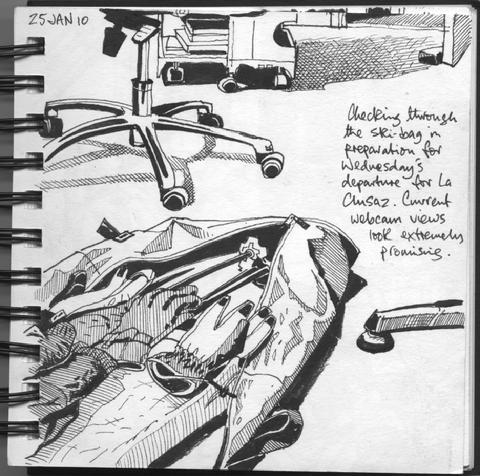 25 JAN 10
Checking through
the ski-bag in
preparation for
Wednesday's
departure for La
Clusaz. Current
webcam views
look extremely
promising.